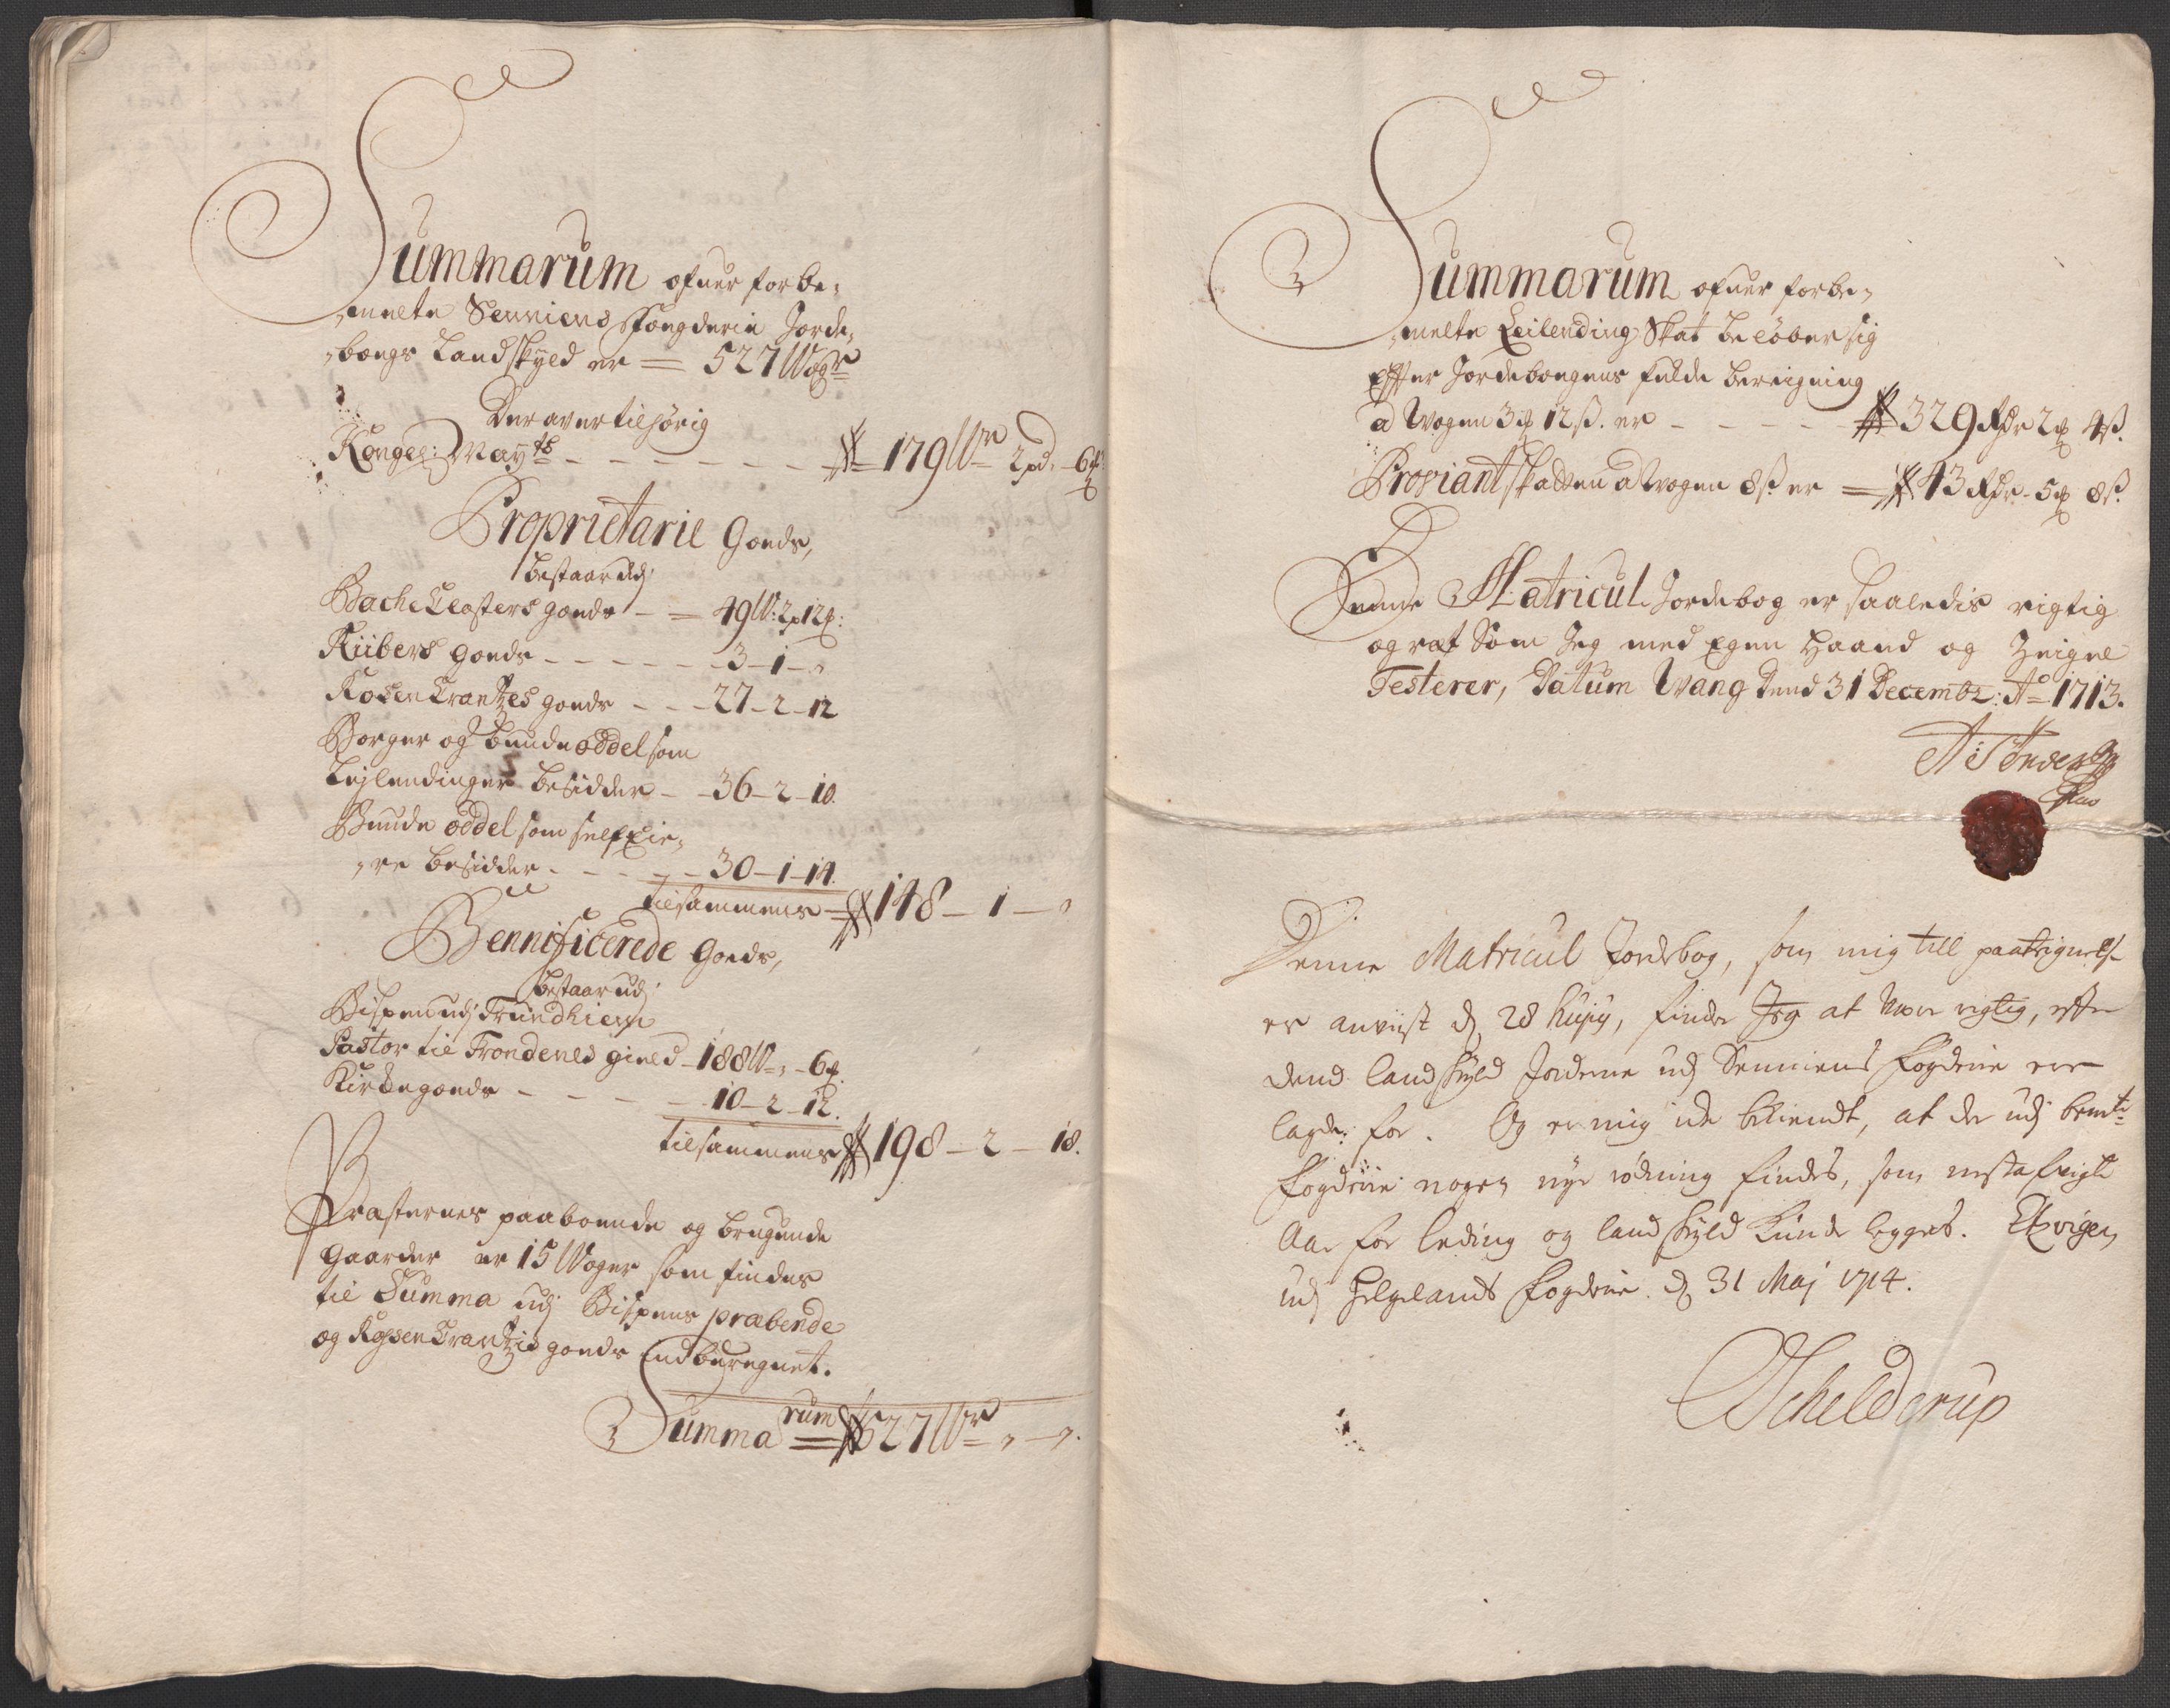 Summarum ofuer forbe-
melte Senniens Fougderie Jorde-
bougs Landskyld er = 527 Wogr
Der aver tilhörig
Kongel: Mayts - - - - 179 Wr 2 pd. - 6 
Proprietarie Goeds,
bestaar udj
Bache Closters goeds - = 49 W: 2 p 12 :
Riibers goeds - - - - 3 - 1 - "
Rosencrantzes goeds - - - 27 - 2 - 12
Borger og bunde oddel som
Leylendinger besidder - - 36 - 2 - 10.
Bunde oddel som self Eie-
re besidder - - - - 30 - 1 - 14.
tilsammens = 148 - 1 - "
Bennificerede Goeds,
bestaar udj
Bispen udj Trundhiem
Pastor til Trondenes gield - 188 W - " - 6
Kirke goeds - - - - 10 - 2 - 12.
tilsammens 198 - 2 - 18.
Præsternes paaboende og brugende
Gaarder er 15 Woger som findes
til Summa udj Bispens præbende
og Rosencrantzis goeds indberegnet.
Summarum = 527 Wr " - ".
Summarum ofuer forbe-
melte Leilending Skat belöber sig
Effter Jordebougens fulde bereigning
a Wogen 3  12 ß. er - - - - 329 Rdr 2  4 ß.
Proviantskatten a Wogen 8 ß er = 43 Rdr - 5  8 ß.
Denne Matricul Jordebog er saaledis rigtig
og ret Som Jeg med Egen Haand og Zeigne
Testerer, Datum Wang Dend 31 Decembr: Ao 1713.
Denne Matricul Jordebog, som mig till paategnelse
er anviist d 28 hujus, finder Jeg at være rigtig, efter
dend landskyld Jorderne udj Senniens fogderie ere
lagde for. Og er mig icke bekiendt, at der udj bemte
fogderie nogen nye rödning findes, som nestafvigte
Aar for leding og landskyld kunde legges.
udj Helgelands fogderie d 31 Maj 1714.
Schelderup